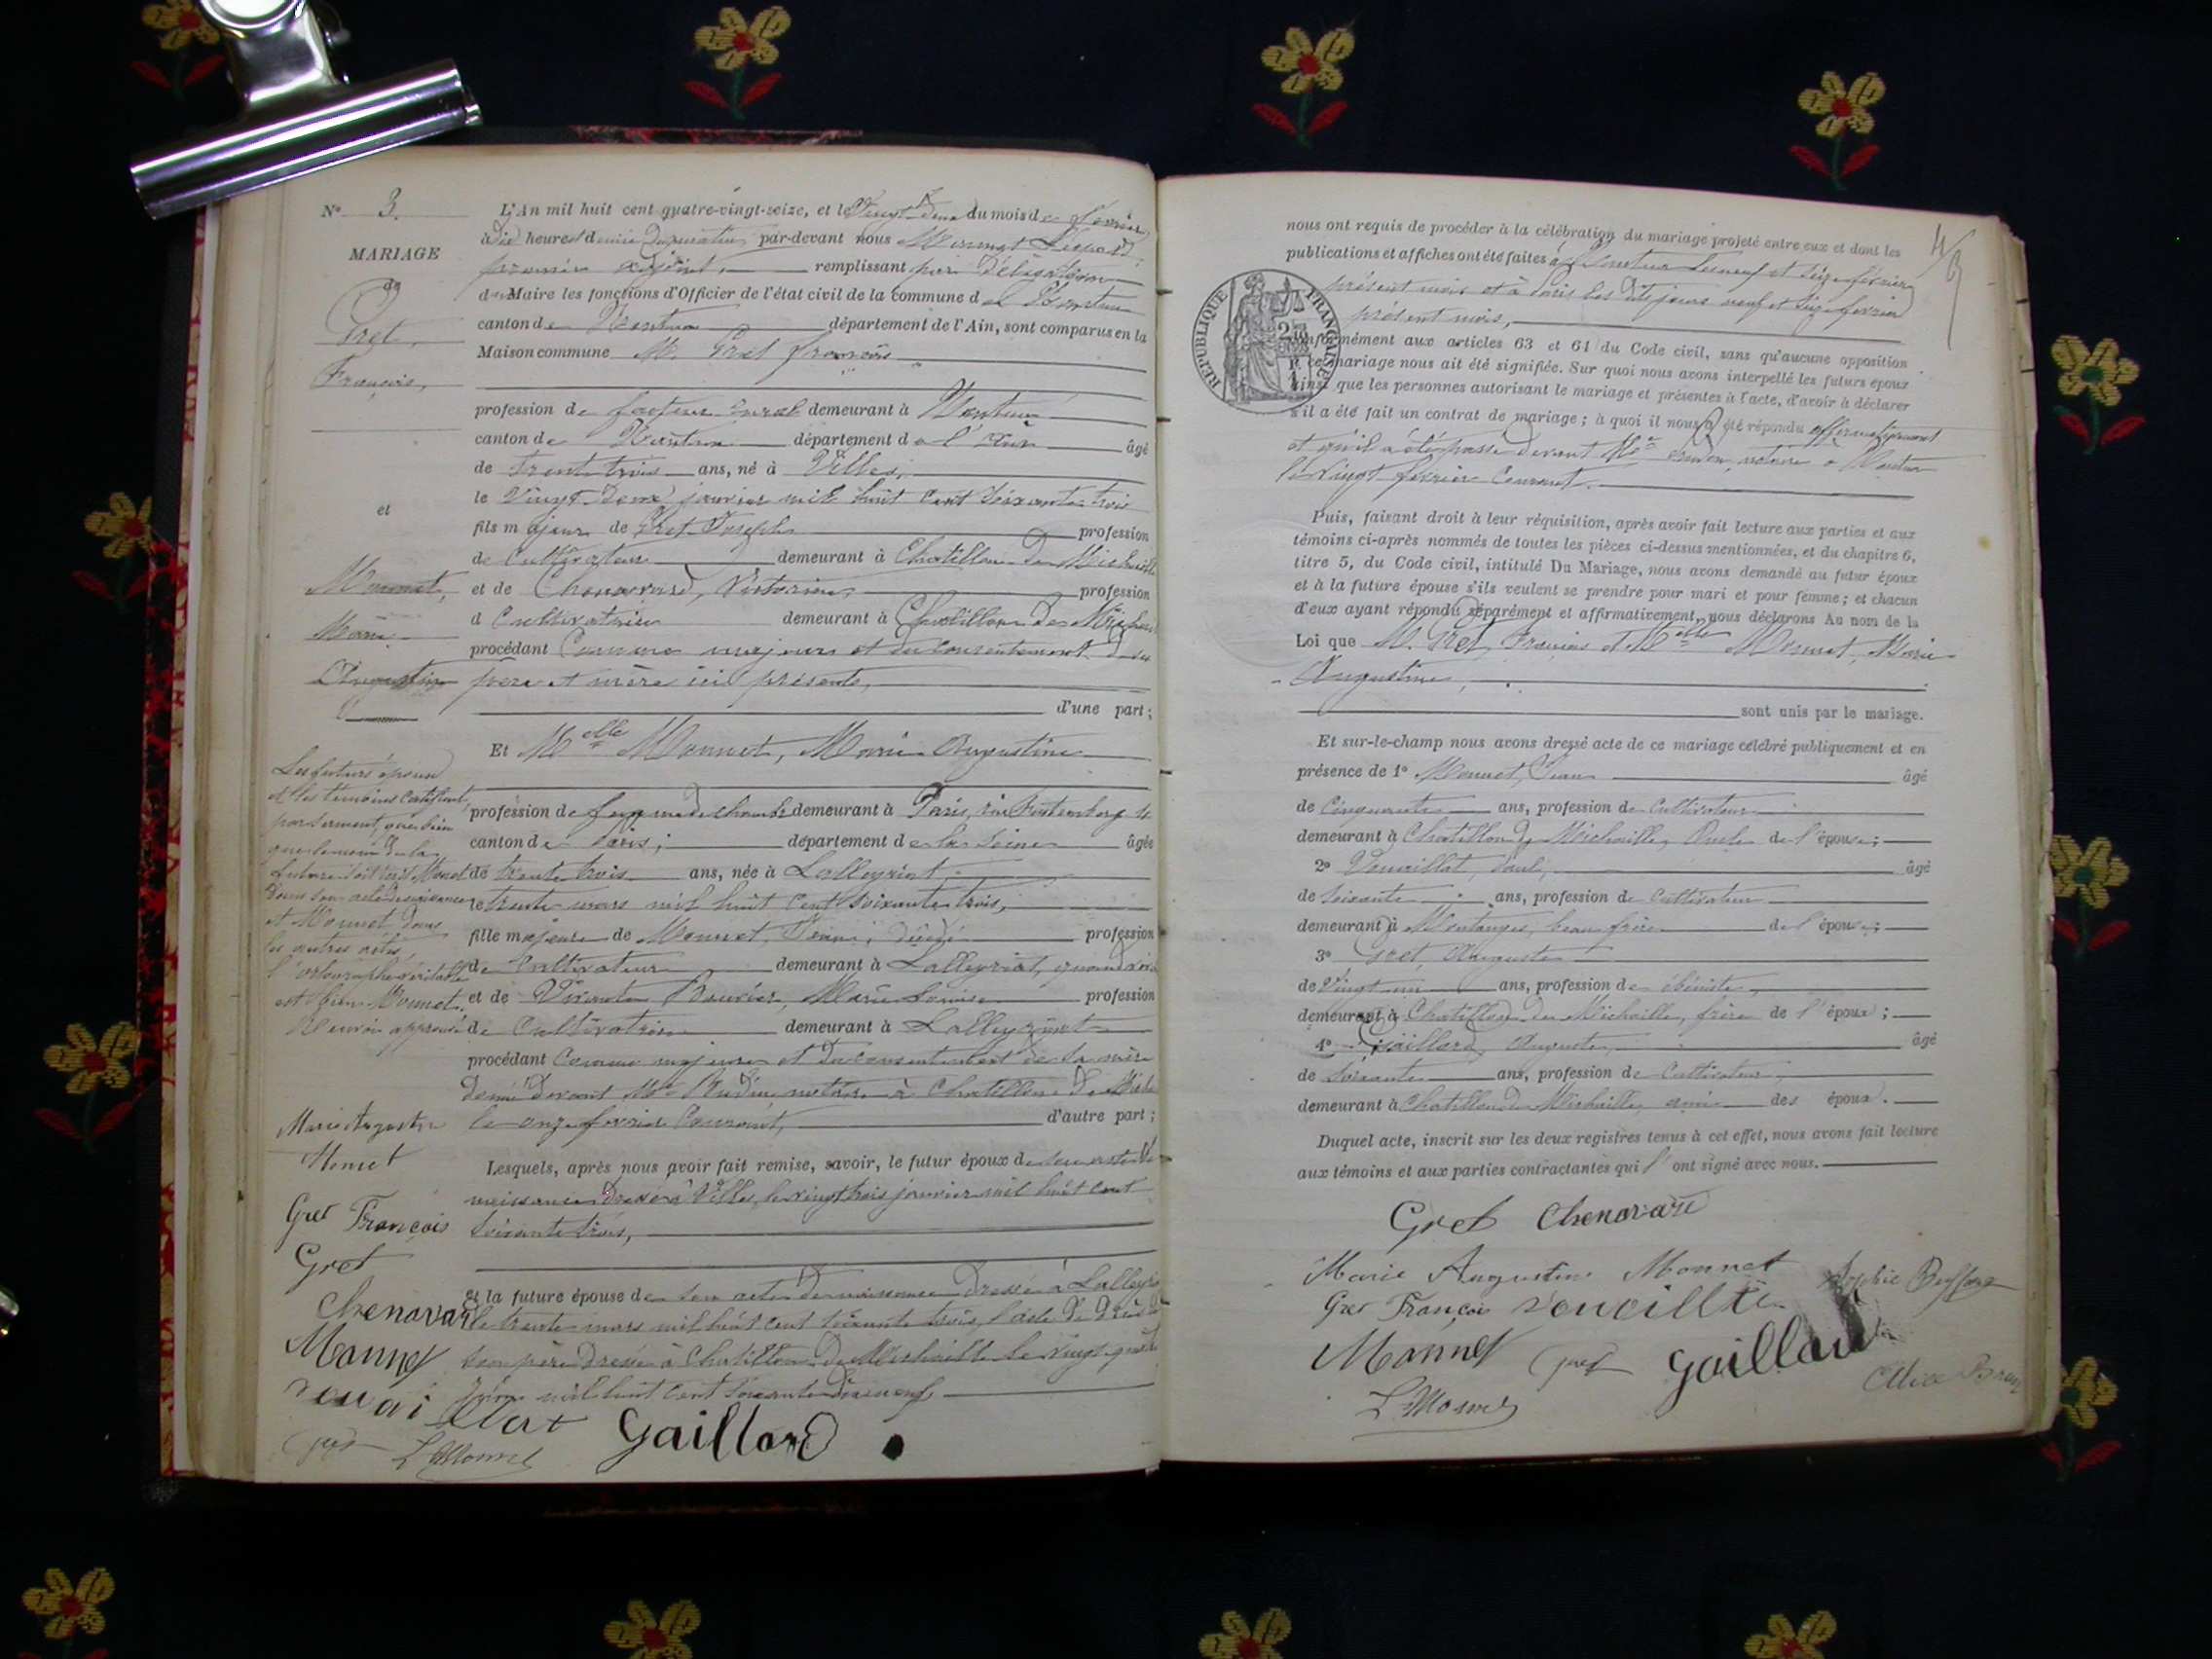 N° 3.
MARIAGE
de
Gret,
François,
et
Monnet,
Marie
Augustine
L'An mil huit cent quatre-vingt-seize, et le Vingt-deux du mois de février
à dix heures et demie du matin par-devant nous Monnet
premier adjoint, remplissant par délégation
du Maire les fonctions d'Officier de l'état civil de la commune de
canton de département de l'Ain, sont comparus en la
Maison commune M. Gret François
profession de facteur rural demeurant à
canton de département de l'Ain âgé
de trente trois ans, né à Villes,
le Vingt-deux janvier mil huit cent soixante trois
fils majeur de Gret Joseph profession
de Cultivateur demeurant à Chatillon de Michaille
et de Chenavard, Victorine profession
de Cultivatrice demeurant à Chatillon de Michaille
procédant Comme majeur et du consentement de ses
père et mère ici présents,
d'une part;
Et Melle Monnet, Marie Augustine
profession de femme de chambre demeurant à Paris, rue Furstemberg 4
canton de Paris; département de la Seine âgée
de trente trois ans, née à Lalleyriat,
le trente mars mil huit cent soixante trois,
fille majeure de Monnet, décédé profession
de Cultivateur demeurant à Lalleyriat, quand vivait
et de Vivante Bouvier, Marie Louise profession
de Cultivatrice demeurant à Lalleyriat
procédant Comme majeure et du consentement de sa mère
donné devant Me notaire à Chatillon de Michaille
le onze février Courant, d'autre part;
Lesquels, après nous avoir fait remise, savoir, le futur époux de son acte de
naissance dressé à Villes, le vingt trois janvier mil huit cent
soixante trois,
et la future épouse de son acte de naissance dressé à Lalleyriat
le trente mars mil huit cent soixante trois, l'acte de décès de
son père dressé à Chatillon de Michaille le vingt quatre
mil huit cent soixante dix neuf
Les futurs époux
et les témoins certifient
par serment, que bien
que le nom de la
future soit écrit Monet
dans son acte de naissance
et Monnet, dans
les autres actes,
l'orthographe véritable
est bien Monnet.
Renvoi approuvé
Marie Augustine
Monnet
Gret François
Gret
Chenavard
Monnet
Gret
L. Monnet
Gaillard
nous ont requis de procéder à la célébration du mariage projeté entre eux et dont les
publications et affiches ont été faites à les neuf et seize février
présent mois et à Paris les dits jours neuf et seize février
présent mois,
conformément aux articles 63 et 64 du Code civil, sans qu'aucune opposition
à ce mariage nous ait été signifiée. Sur quoi nous avons interpellé les futurs époux
ainsi que les personnes autorisant le mariage et présentes à l'acte, d'avoir à déclarer
s'il a été fait un contrat de mariage; à quoi il nous a été répondu affirmativement
et qu'il a été passé devant Me notaire à
le Vingt février Courant.
RÉPUBLIQUE FRANÇAISE
Puis, faisant droit à leur réquisition, après avoir fait lecture aux parties et aux
témoins ci-après nommés de toutes les pièces ci-dessus mentionnées, et du chapitre 6,
titre 5, du Code civil, intitulé Du Mariage, nous avons demandé au futur époux
et à la future épouse s'ils veulent se prendre pour mari et pour femme; et chacun
d'eux ayant répondu séparément et affirmativement, nous déclarons Au nom de la
Loi que M. Gret, François et Melle Monnet, Marie
Augustine,
sont unis par le mariage.
Et sur-le-champ nous avons dressé acte de ce mariage célébré publiquement et en
présence de 1° Monnet, Jean âgé
de Cinquante ans, profession de Cultivateur
demeurant à Chatillon de Michaille, Oncle de l'épouse;
2° âgé
de soixante ans, profession de Cultivateur
demeurant à Montanges, beau frère de l'épouse;
3° Gret Auguste
de Vingt un ans, profession de ébéniste,
demeurant à Chatillon de Michaille, frère de l'époux;
4° Gaillard, Auguste, âgé
de soixante ans, profession de Cultivateur,
demeurant à Chatillon de Michaille, ami des époux.
Duquel acte, inscrit sur les deux registres tenus à cet effet, nous avons fait lecture
aux témoins et aux parties contractantes qui l'ont signé avec nous.
Gret Chenavard
Marie Augustine Monnet Sophie
Gret François
Monnet Gret Gaillard
L. Monnet Alice